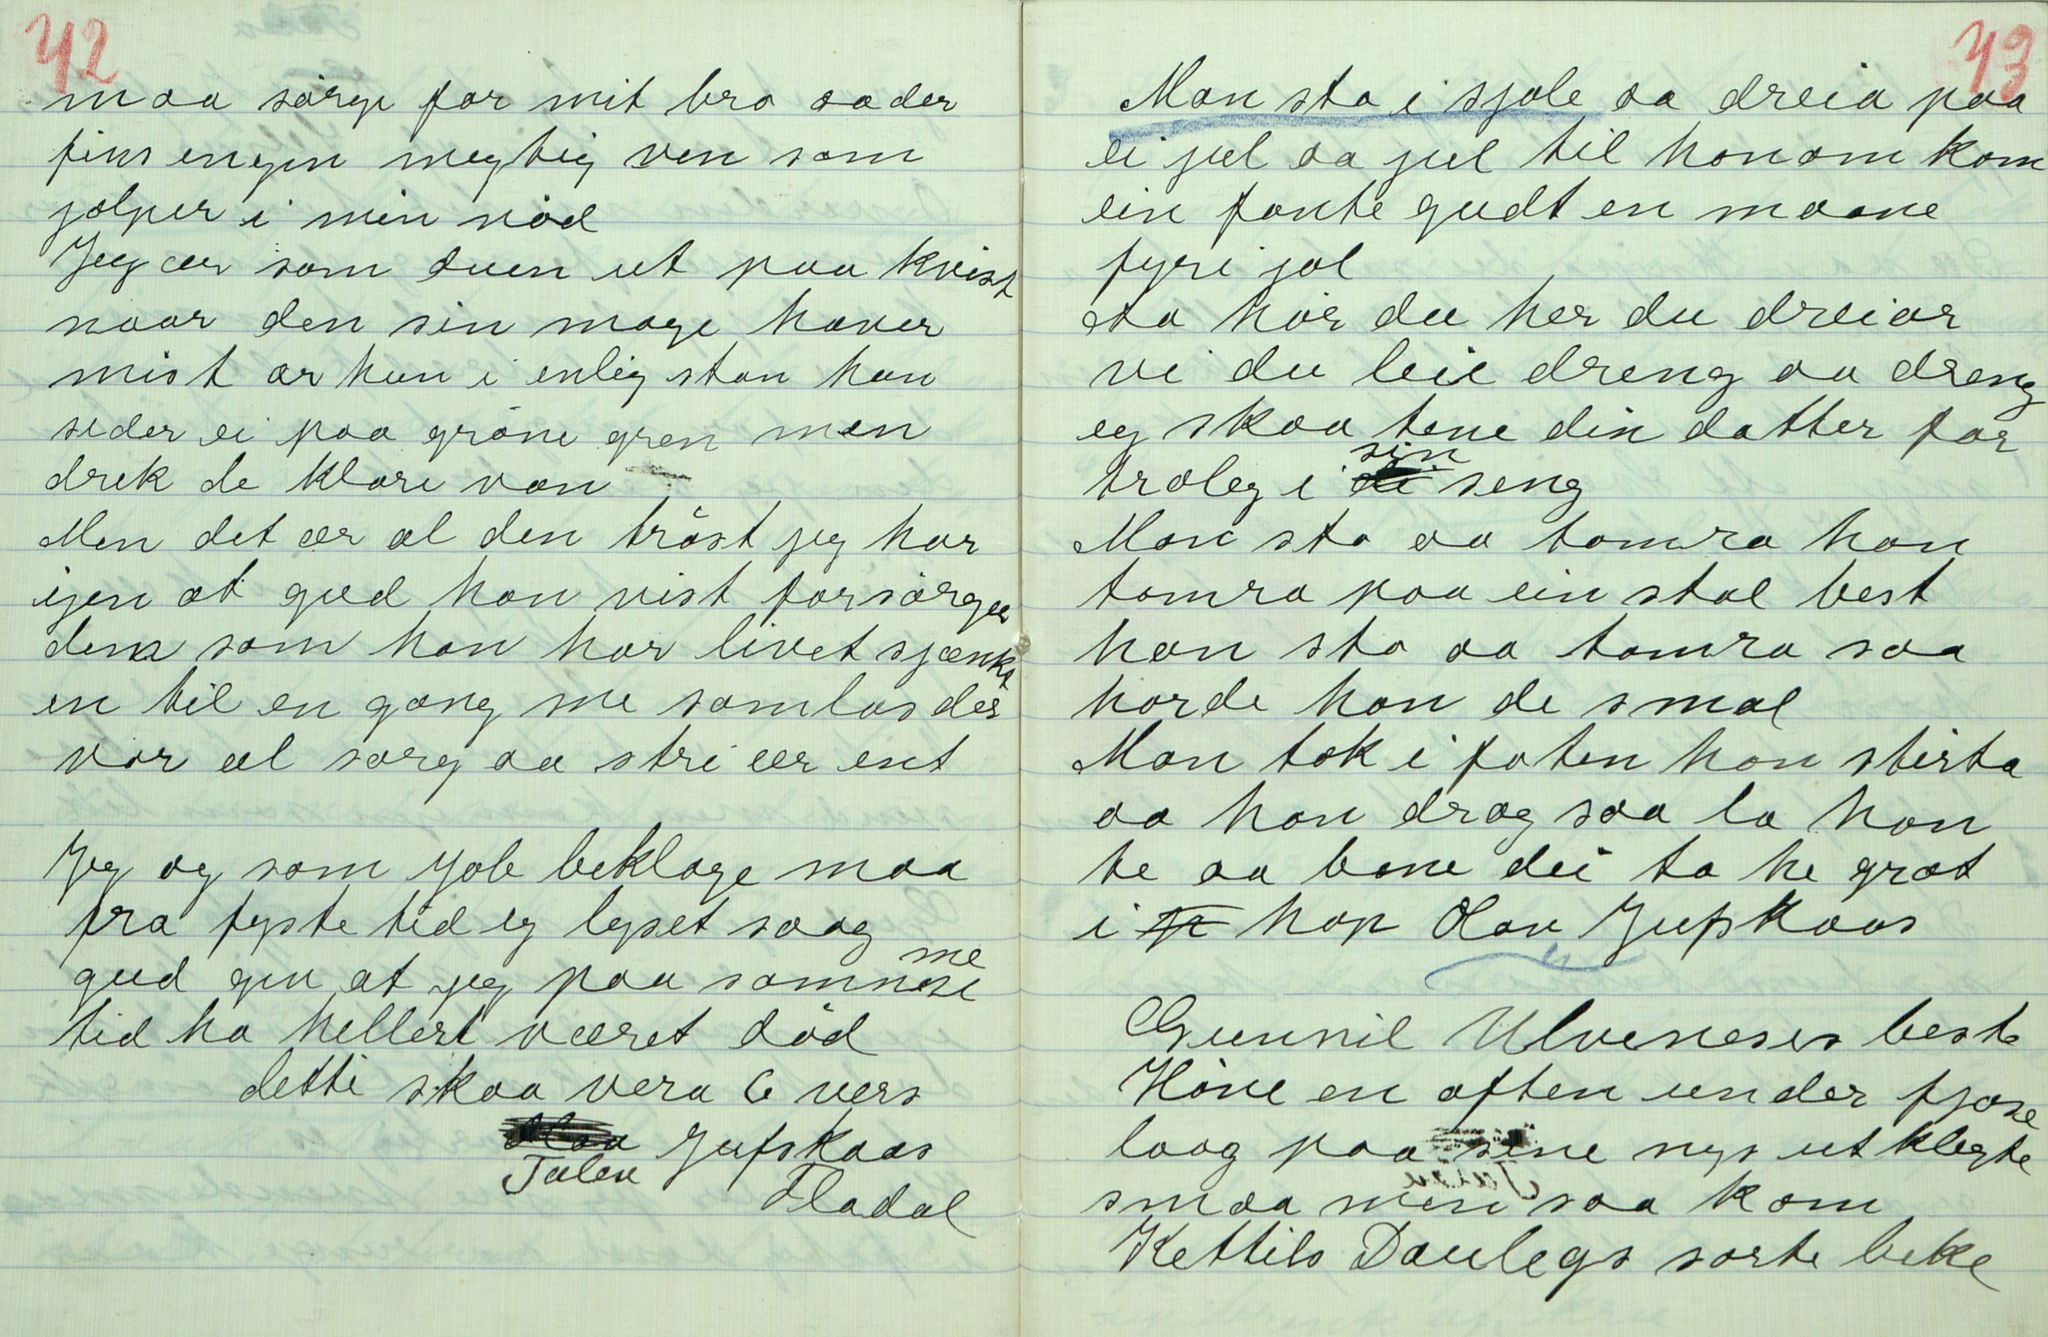 42
maa sørge for mit brø aa der
fins engen megtig ven som
jølper i min nød
Jeg ær som duen ut paa kvist
naar den sin mage haver
mist ær hun i enlig stan han
seder ei paa grøne gren men
drek de klare van
Men det ær al den trøst jeg har
igen at gud han vist forsørger
dem som han har livet sjænkt
en til en gang me samlas der
vor al sorg aa stri ær ent
Jeg og som Job beklage maa
fra fyste tid eg lyset saag
gud gen at jeg paa samme
tid ha hellert været død
dette skaa vera 6 vers
Jufskaas
Talen
Fladal
43
Man sta i sjole aa dreia paa
ei jul aa jul til honom kom
ein fante gudt en maane
fyri jol
Aa hør du her du dreiar
vi du leie dreng aa dreng
eg skaa tene din datter for
troleg i sin seng
Man sta aa tomra han
tomra paa ein stal best
han sta aa tomra saa
horde han de smal
Man tok i foten han stirta
aa han drog saa la han
te aa bane dei ta he grat
i hop Olav Jufskaas
Gunnil Ulveneses beste
Høne en aften under fjøse
laag paa sine nys utklegte
smaa men saa kom
Kettils Daulegs sorte bike